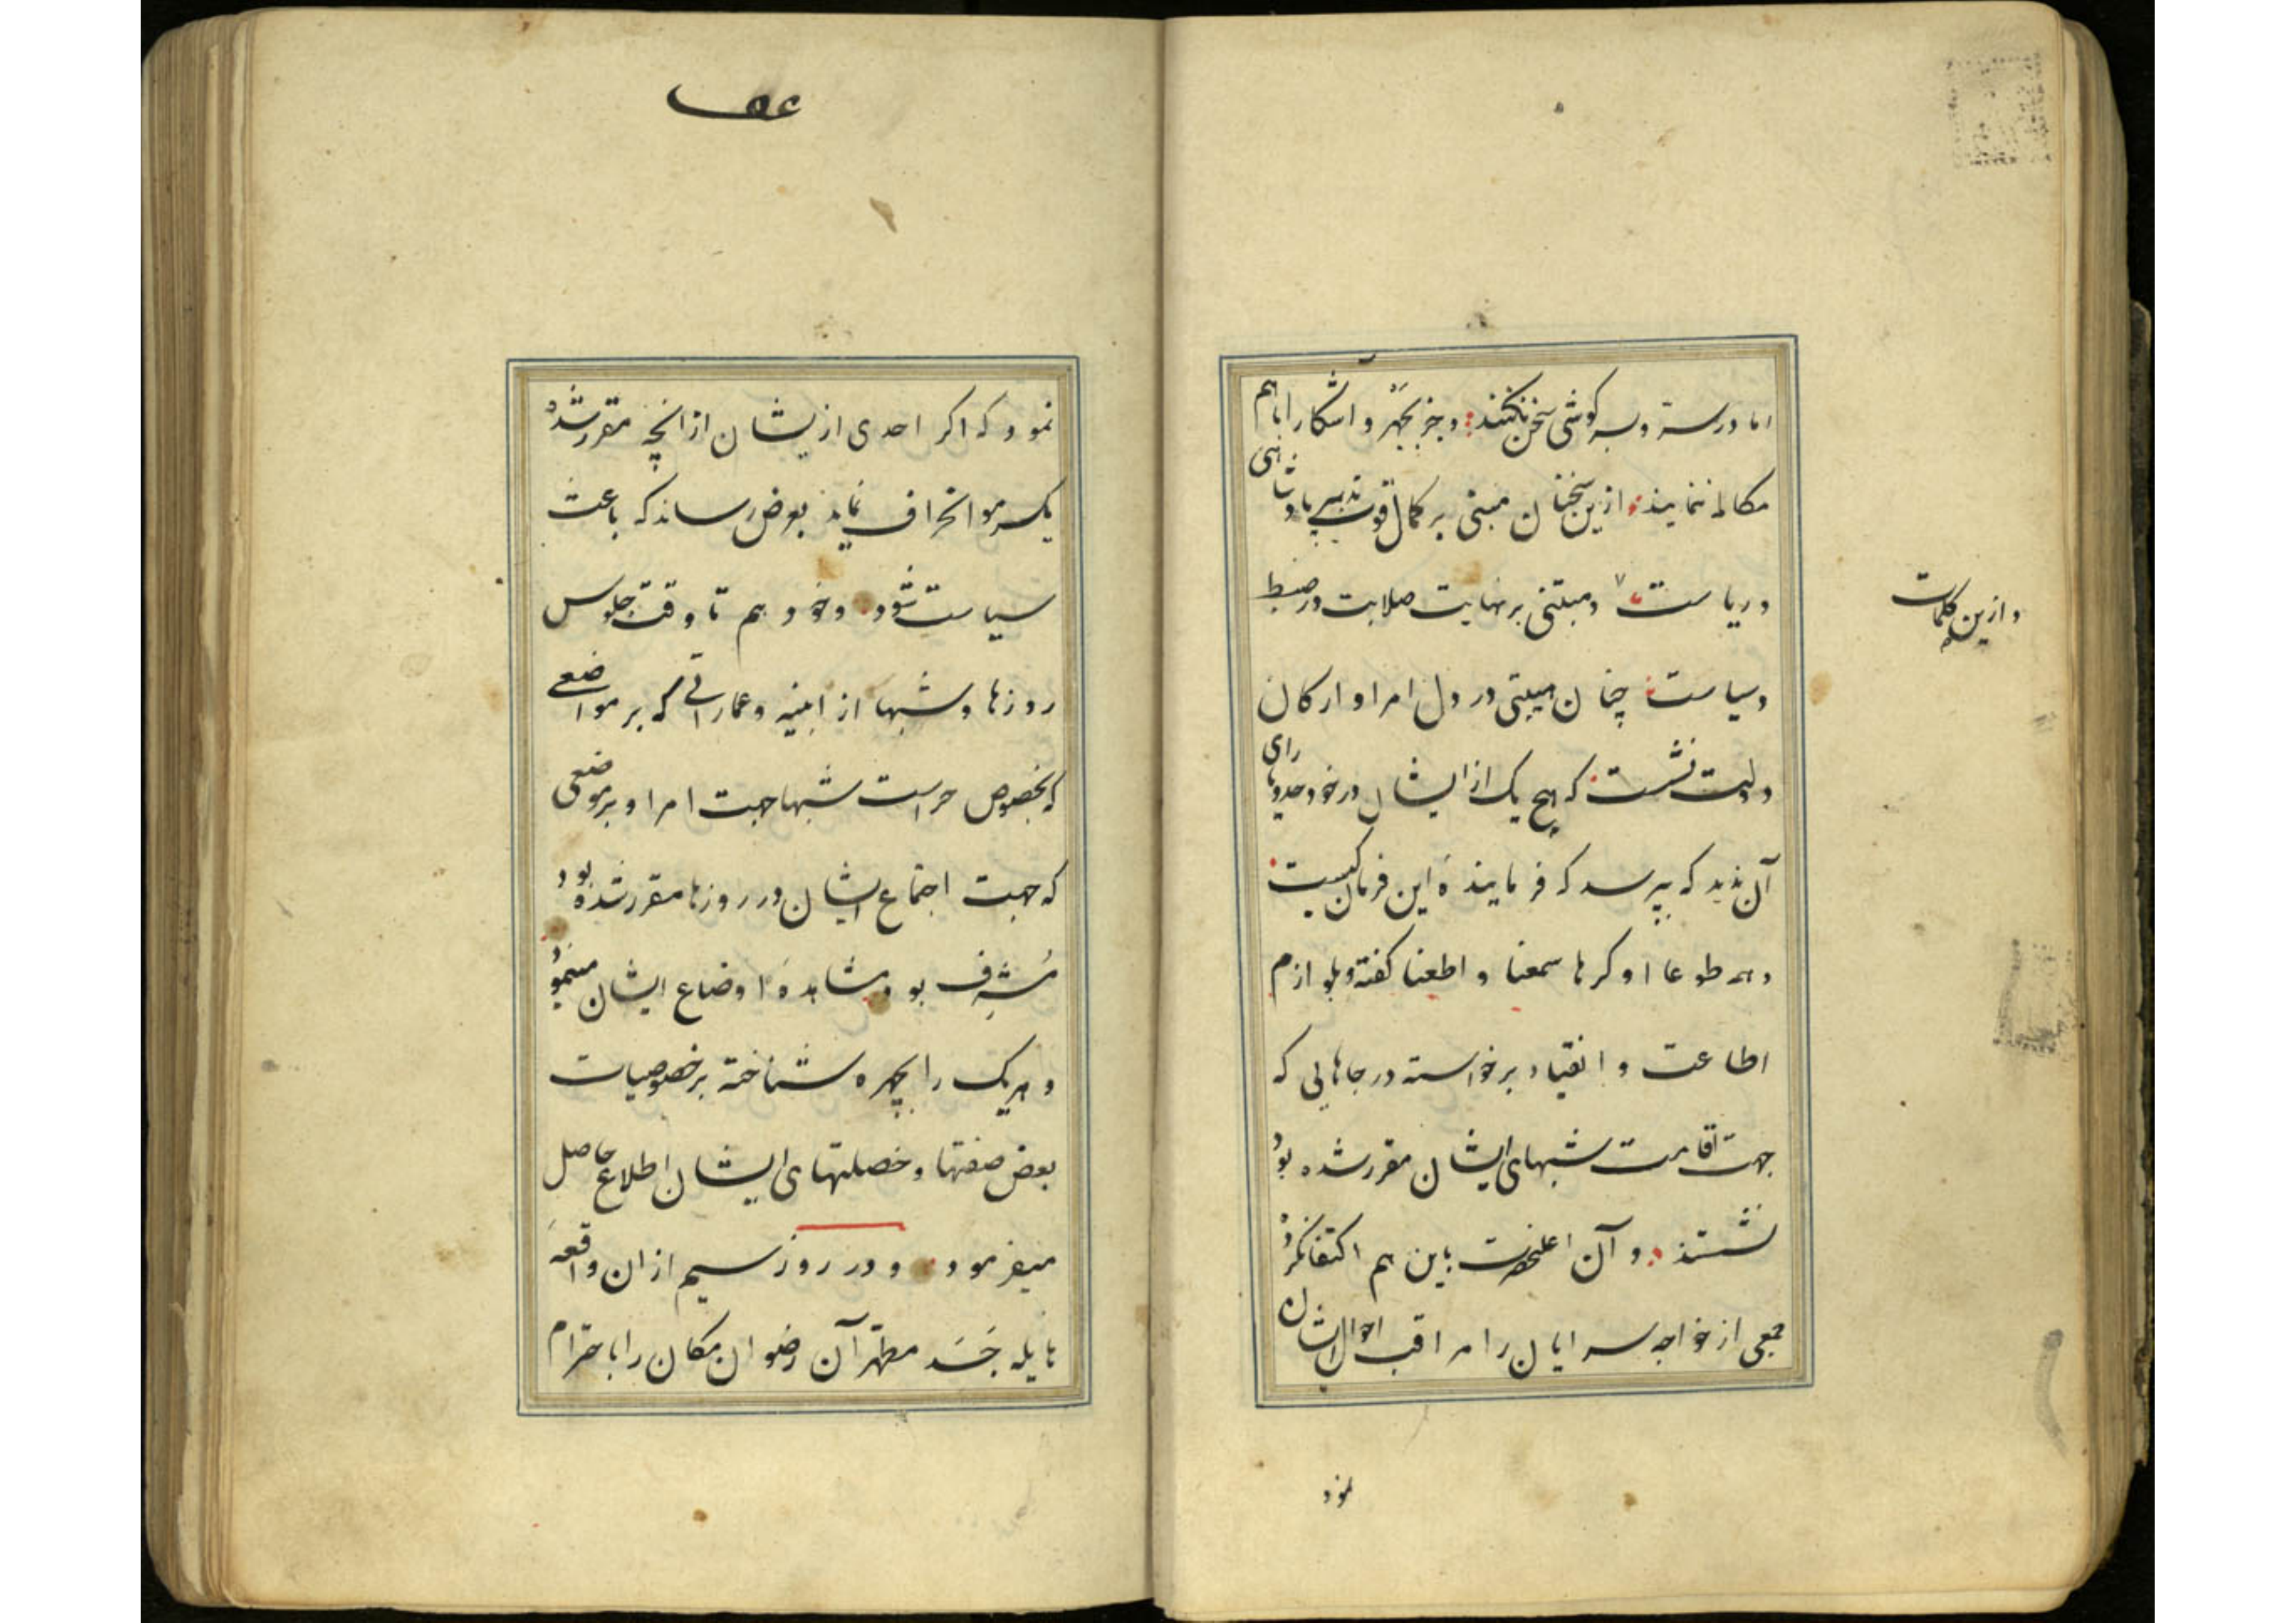 اما در ستر و سر کوشی سخن نکنند و جز بجهر و اشکارا با هم
مکالمه ننمایند ازین سخنان مبنی بر کمال قوت تدبیر پادشاهی
و ریاست و مبتنی بر نهایت صلابت در ضبط
و سیاست چنان هیبتی در دل امرا و ارکان
دولت نشست که هیچ یک از ایشان در خود حد و یارای
آن ندید که بپرسد که فرماینده این فرمان کیست
و همه طوعا او کرها سمعنا و اطعنا کفته و بلوازم
اطاعت و انقیاد برخواسته در جاهایی که
جهت اقامت شبهای ایشان مقرر شده بود
نشستند و آن اعلحضرت باین هم اکتفا نکرد
جمعی از خواجه سرایان را مراقب احوال ایشان
نمود
و ازین کلمات
نمود که اکر احدی از یشان از انچه مقرر شده
یکسر مو انحراف نماید بعرض رساند که باعث
سیاست شود و خود هم تا وقت جلوس
روزها و شبها از ابنیه و عماراتی که بر مواضعی
که بخصوص حراست شبها جهت امرا و بر موضعی
که جهت اجتماع ایشان در روزها مقرر شده بود
مُشرِف بود مشاهدهٔ اوضاع ایشان مینمود
و هریک را بچهره شناخته بر خصوصیات
بعض صفتها و خصلتهای ایشان اطلاع حاصل
میفرمود و در روز سیم از ان واقعهٔ
هایله جَسَد مطهر آن رضوان مکان را با حترام